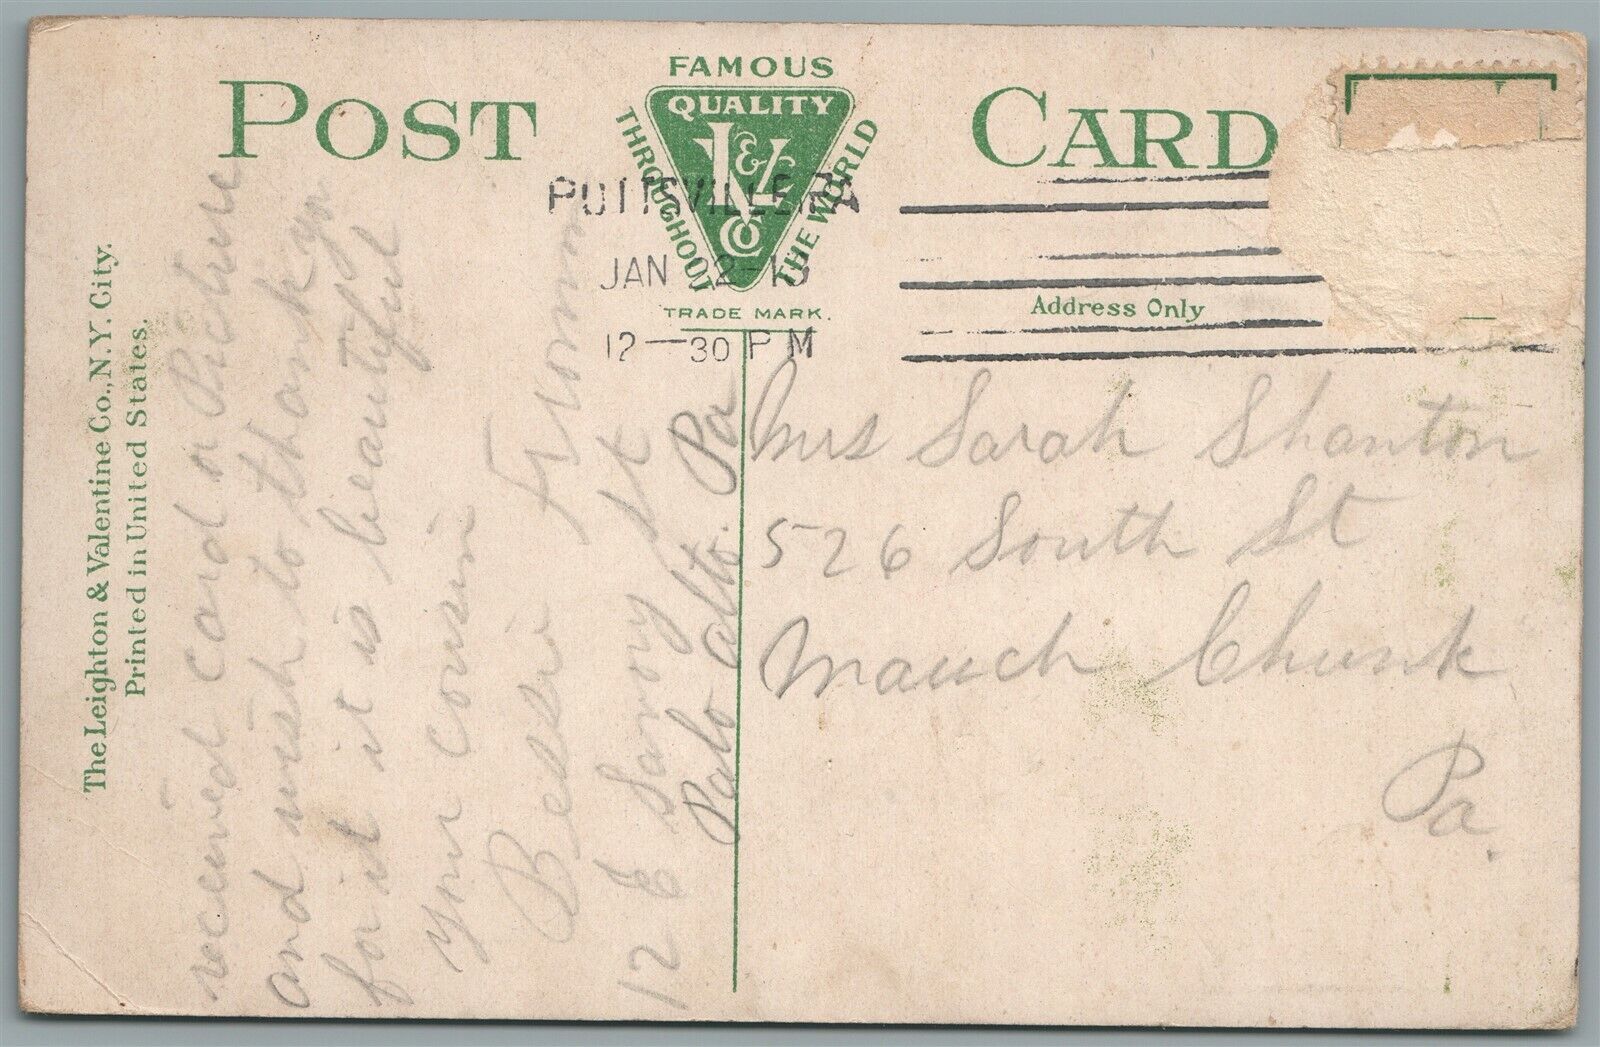 POST CARD
FAMOUS
QUALITY
THROUGHOUT
THE WORLD
L&V
Co
TRADE MARK.
POTTSVILLE PA
JAN 22-13
12-30 PM
Address Only
The Leighton & Valentine Co., N.Y. City.
Printed in United States.
received card or Picture
and wish to thank you
for it it is beautiful
your cousin
Bessie
12 E Savory St
Palo Alto. Pa
Mrs Sarah Shanton
526 South St
Mauch Chunk
Pa.